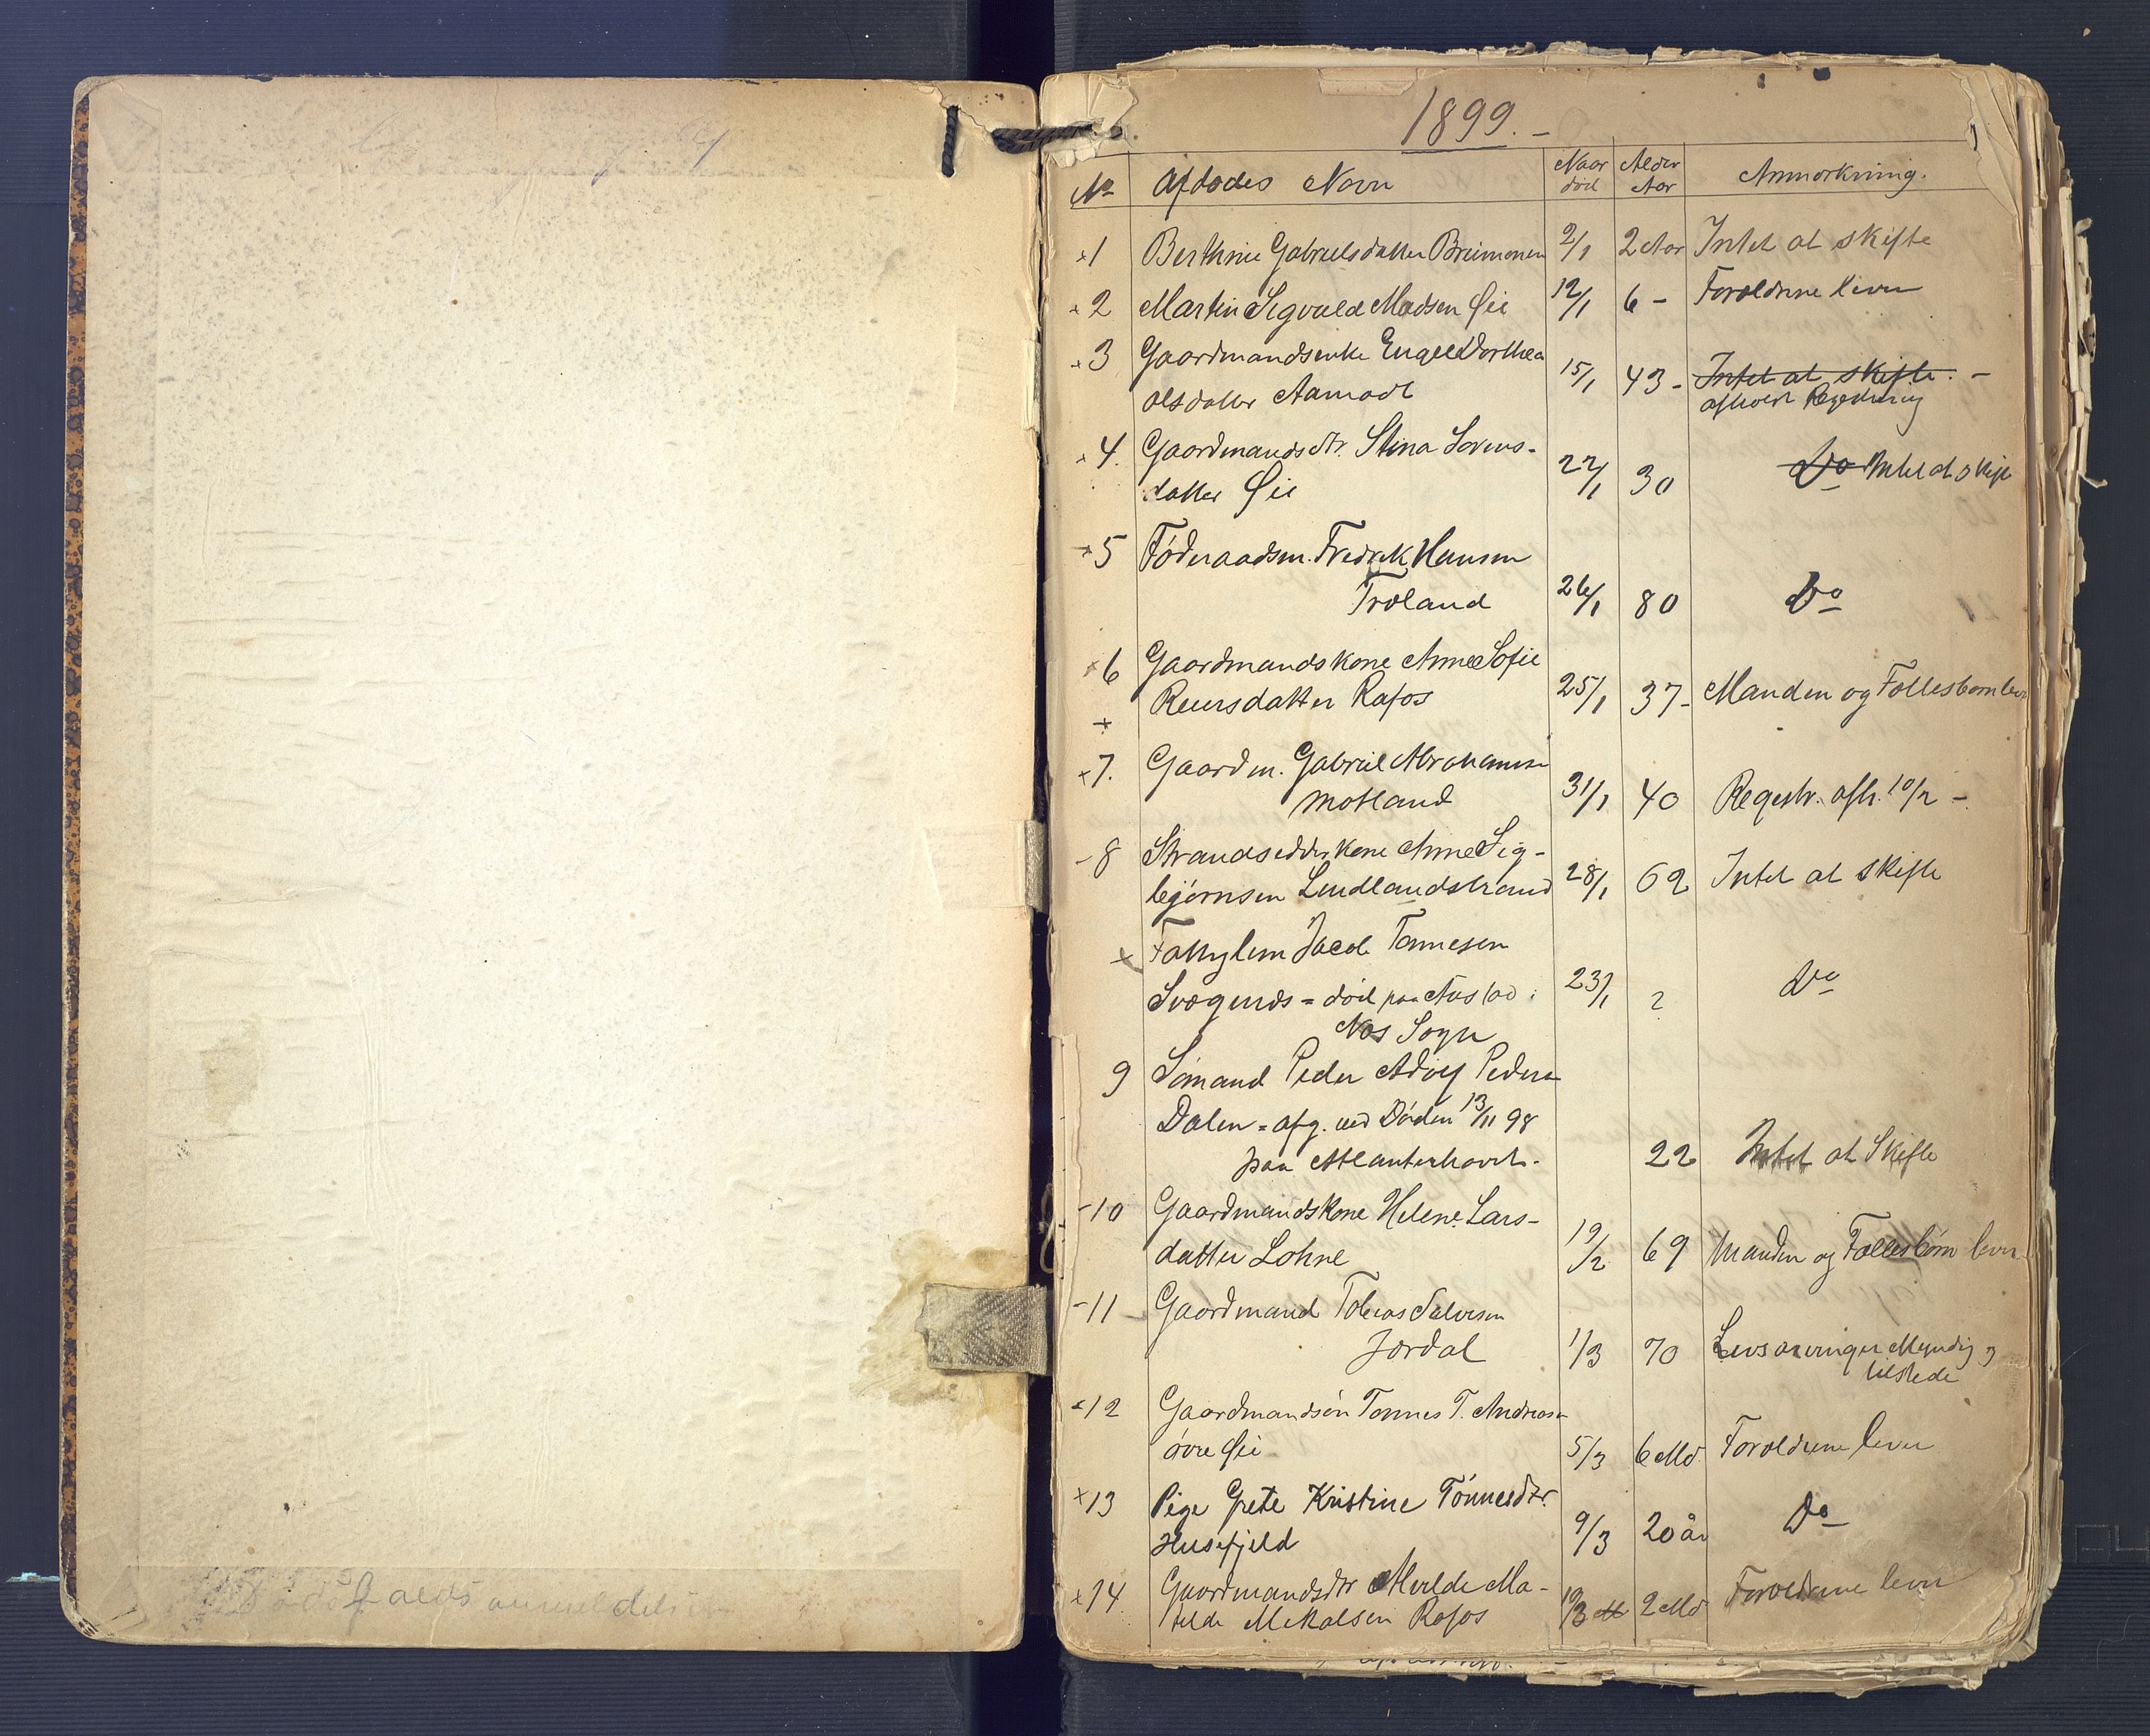 1899. -
No Afdødes Navn Naar død Alder Aar Anmærkning.
x1 Berthine Gabrielsdatter 2/1 2 Aar Intet at skifte
x2 Martin Sigvald Madsen Øie 12/1 6 - Forældrene lever
x3 Gaardmandsenke Engel Dorthea
olsdatter Aamodt 15/1 43 - Intet at skifte. -
afholdt Registrering
x4. Gaardmandsdtr. Stina Sørens-
datter Øie 22/1 30 Do Intet at skifte
x5 Føderaadsm. Fredrik Hansen
Træland 26/1 80 Do
x6 Gaardmandskone Anne Sofie
Reiersdatter Rafos 25/1 37 - Manden og Fællesbørn lever
+
x7. Gaardm. Gabriel Abrahamsen
Moland 31/1 40 Registr. afh. 10/2 -
-8 Strandsidderkone Anne Sig-
bjørnsen Lindlandstrand 28/1 62 Intet at skifte
x Fattiglem Jacob Tønnesen
død paa 23/1 ? Do
Næs Sogn
9 Sømand Peder Adolf Pedersen
Dalen = afg. ved Døden 13/11 98
paa Atlanterhavet. 22 Intet at Skifte
-10 Gaardmandskone Helene Lars-
datter Lohne 19/2 69 Manden og Fællesbørn lever
-11 Gaardmand Tobias Salvesen
Jordal 1/3 70 Livsarvinger Myndig og
tilstede
x12 Gaardmandsøn Tønnes T. Andreasen
øvre Øie 5/3 6 Md. Forældrene lever
x13 Pige Grete Kristine Tønnesdtr.
Husefjeld 9/3 20 år Do
x14 Gaardmandsdtr Alvilde Ma-
tilde Mikalsen Rafos 19/3 2 Md Forældrene lever
Dødsfaldsanmeldelser